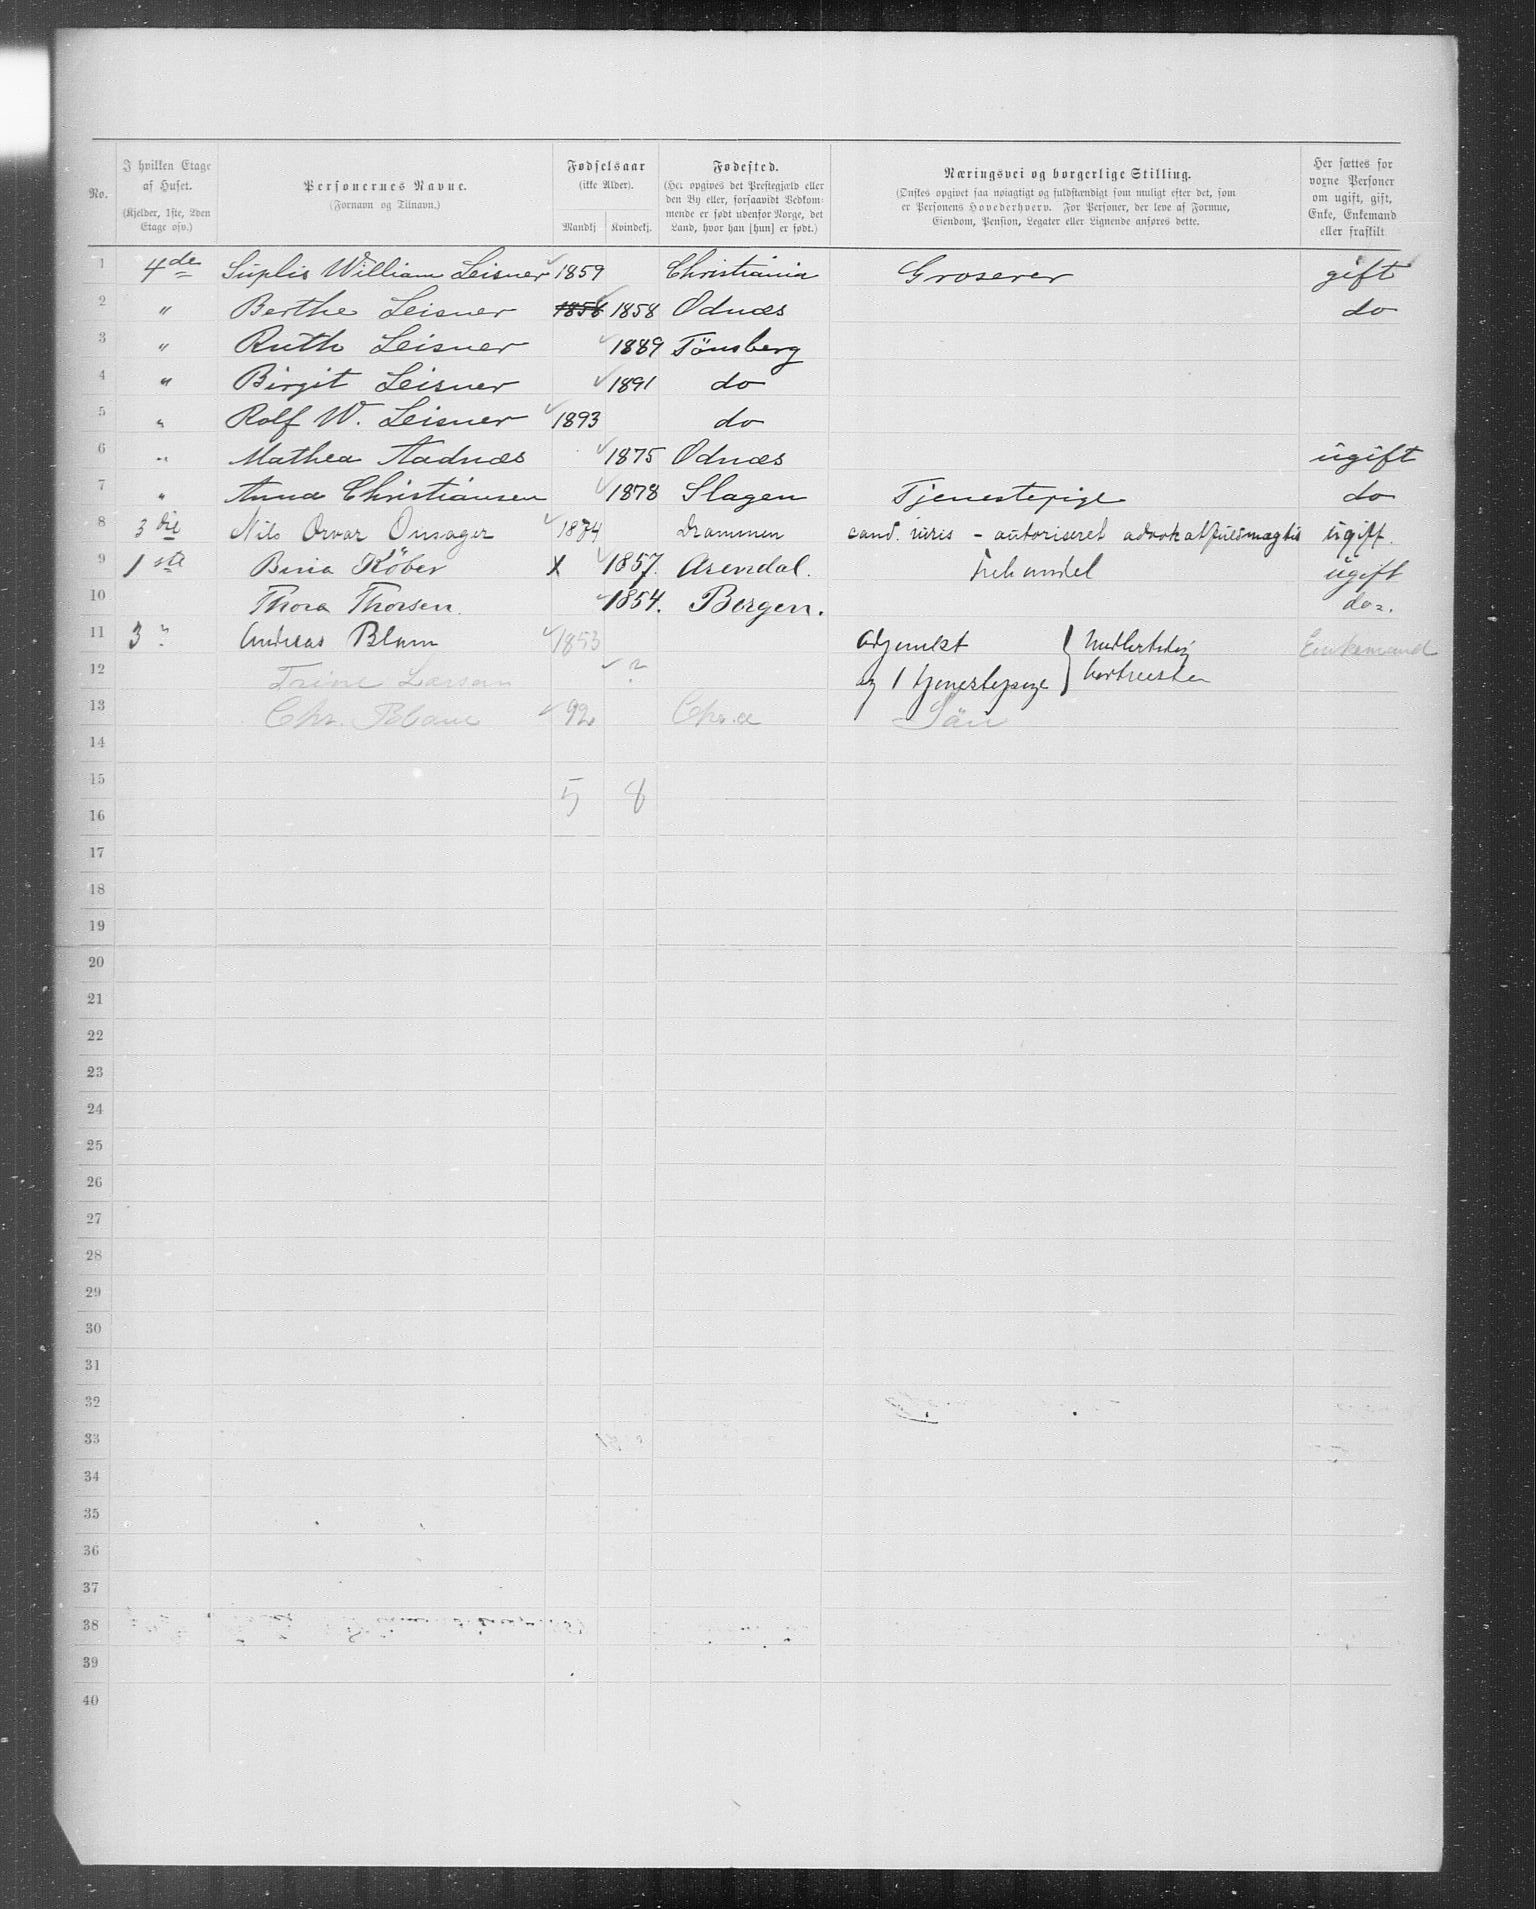 No. | I hvilken Etage af Huset. (Kjelder, 1ste, 2den Etage osv.) | Personernes Navne. (Fornavn og Tilnavn.) | Fødselsaar (ikke Alder). Mandkj. Kvindekj. | Fødested. (Her opgives det Prestegjæld eller den By eller, forsaavidt Vedkommende er født udenfor Norge, det Land, hvor han [hun] er født.) | Næringsvei og borgerlige Stilling. (Ønskes opgivet saa nøiagtigt og fuldstændigt som muligt efter det, som er Personens Hovederhverv. For Personer, der leve af Formue, Eiendom, Pension, Legater eller Lignende anføres dette. | Her sættes for voxne Personer om ugift, gift, Enke, Enkemand eller fraskilt
1 4de Suplis William Leisner 1859 Christiania Groserer gift
2 " Berthe Leisner 1858 1858 Odnæs do
3 " Ruth Leisner 1889 Tønsberg
4 " Birgit Leisner 1891 do
5 " Rolf W. Leisner 1893 do
6 " Mathea Aadnæs 1875 Odnæs ugift
7 " Anna Christiansen 1878 Slagen Tjenestepige do
8 3die Nils Orvar Onsager 1874 Drammen cand. iuris - autoriseret advokatfuldmægtig ugift.
9 1ste Bina Køber X 1857. Arendal. ugift
10 Thora Thorsen. 1854. Bergen. do.
11 3 " Andreas Blom 1853 Adjunkt Enkemand
12 Trine Larsen ? og 1 tjenestepige } bortreiste
13 Chr. Blom 92 Chr.a Søn
14
15
16 5 8
17
18
19
20
21
22
23
24
25
26
27
28
29
30
31
32
33
34
35
36
37
38
39
40